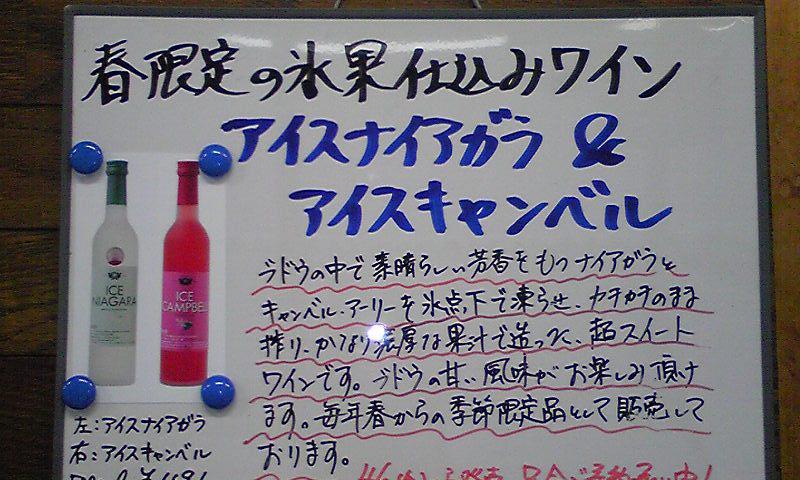 春限定の氷果仕込みワイン
アイスナイアガラ &
アイスキャンベル
ブドウの中で素晴らしい芳香をもつナイアガラと
キャンベル・アーリーを氷点下で凍らせ、カチカチのまま
搾り、かなり濃厚な果汁で造った、超スイート
ワインです。ブドウの甘い風味がお楽しみ頂け
ます。毎年春からの季節限定品として販売して
おります。
ICE
NIAGARA
ICE
CAMPBELL
左:アイスナイアガラ
右:アイスキャンベル